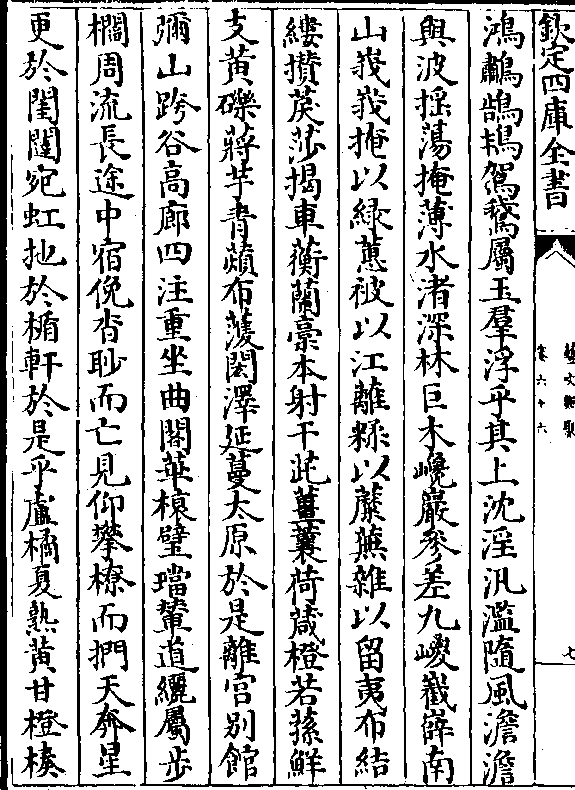 欽定四庫全書
藝文類聚
卷六十六
七
鴻鷫鵠鴇鴐鵞屬玉羣浮乎其上沈淫汎濫隨風澹澹
與波揺蕩掩薄水渚深林巨木巉巖參差九嵕巀嶭南
山峩峩掩以緑蕙被以江離糅以蘪蕪雜以留夷布結
縷攅莀莎揭車蘅蘭藁本射干茈薑蘘荷葴橙若蓀鮮
支黄礫蔣芧青薠布濩閎澤延蔓太原於是離宮别館
彌山跨谷高廊四注重坐曲閣華榱璧璫輦道纚屬步
櫩周流長途中宿俛杳眇而亡見仰攀橑而捫天奔星
更於閨闥宛虹扡於楯軒於是乎盧橘夏熟黄甘橙楱